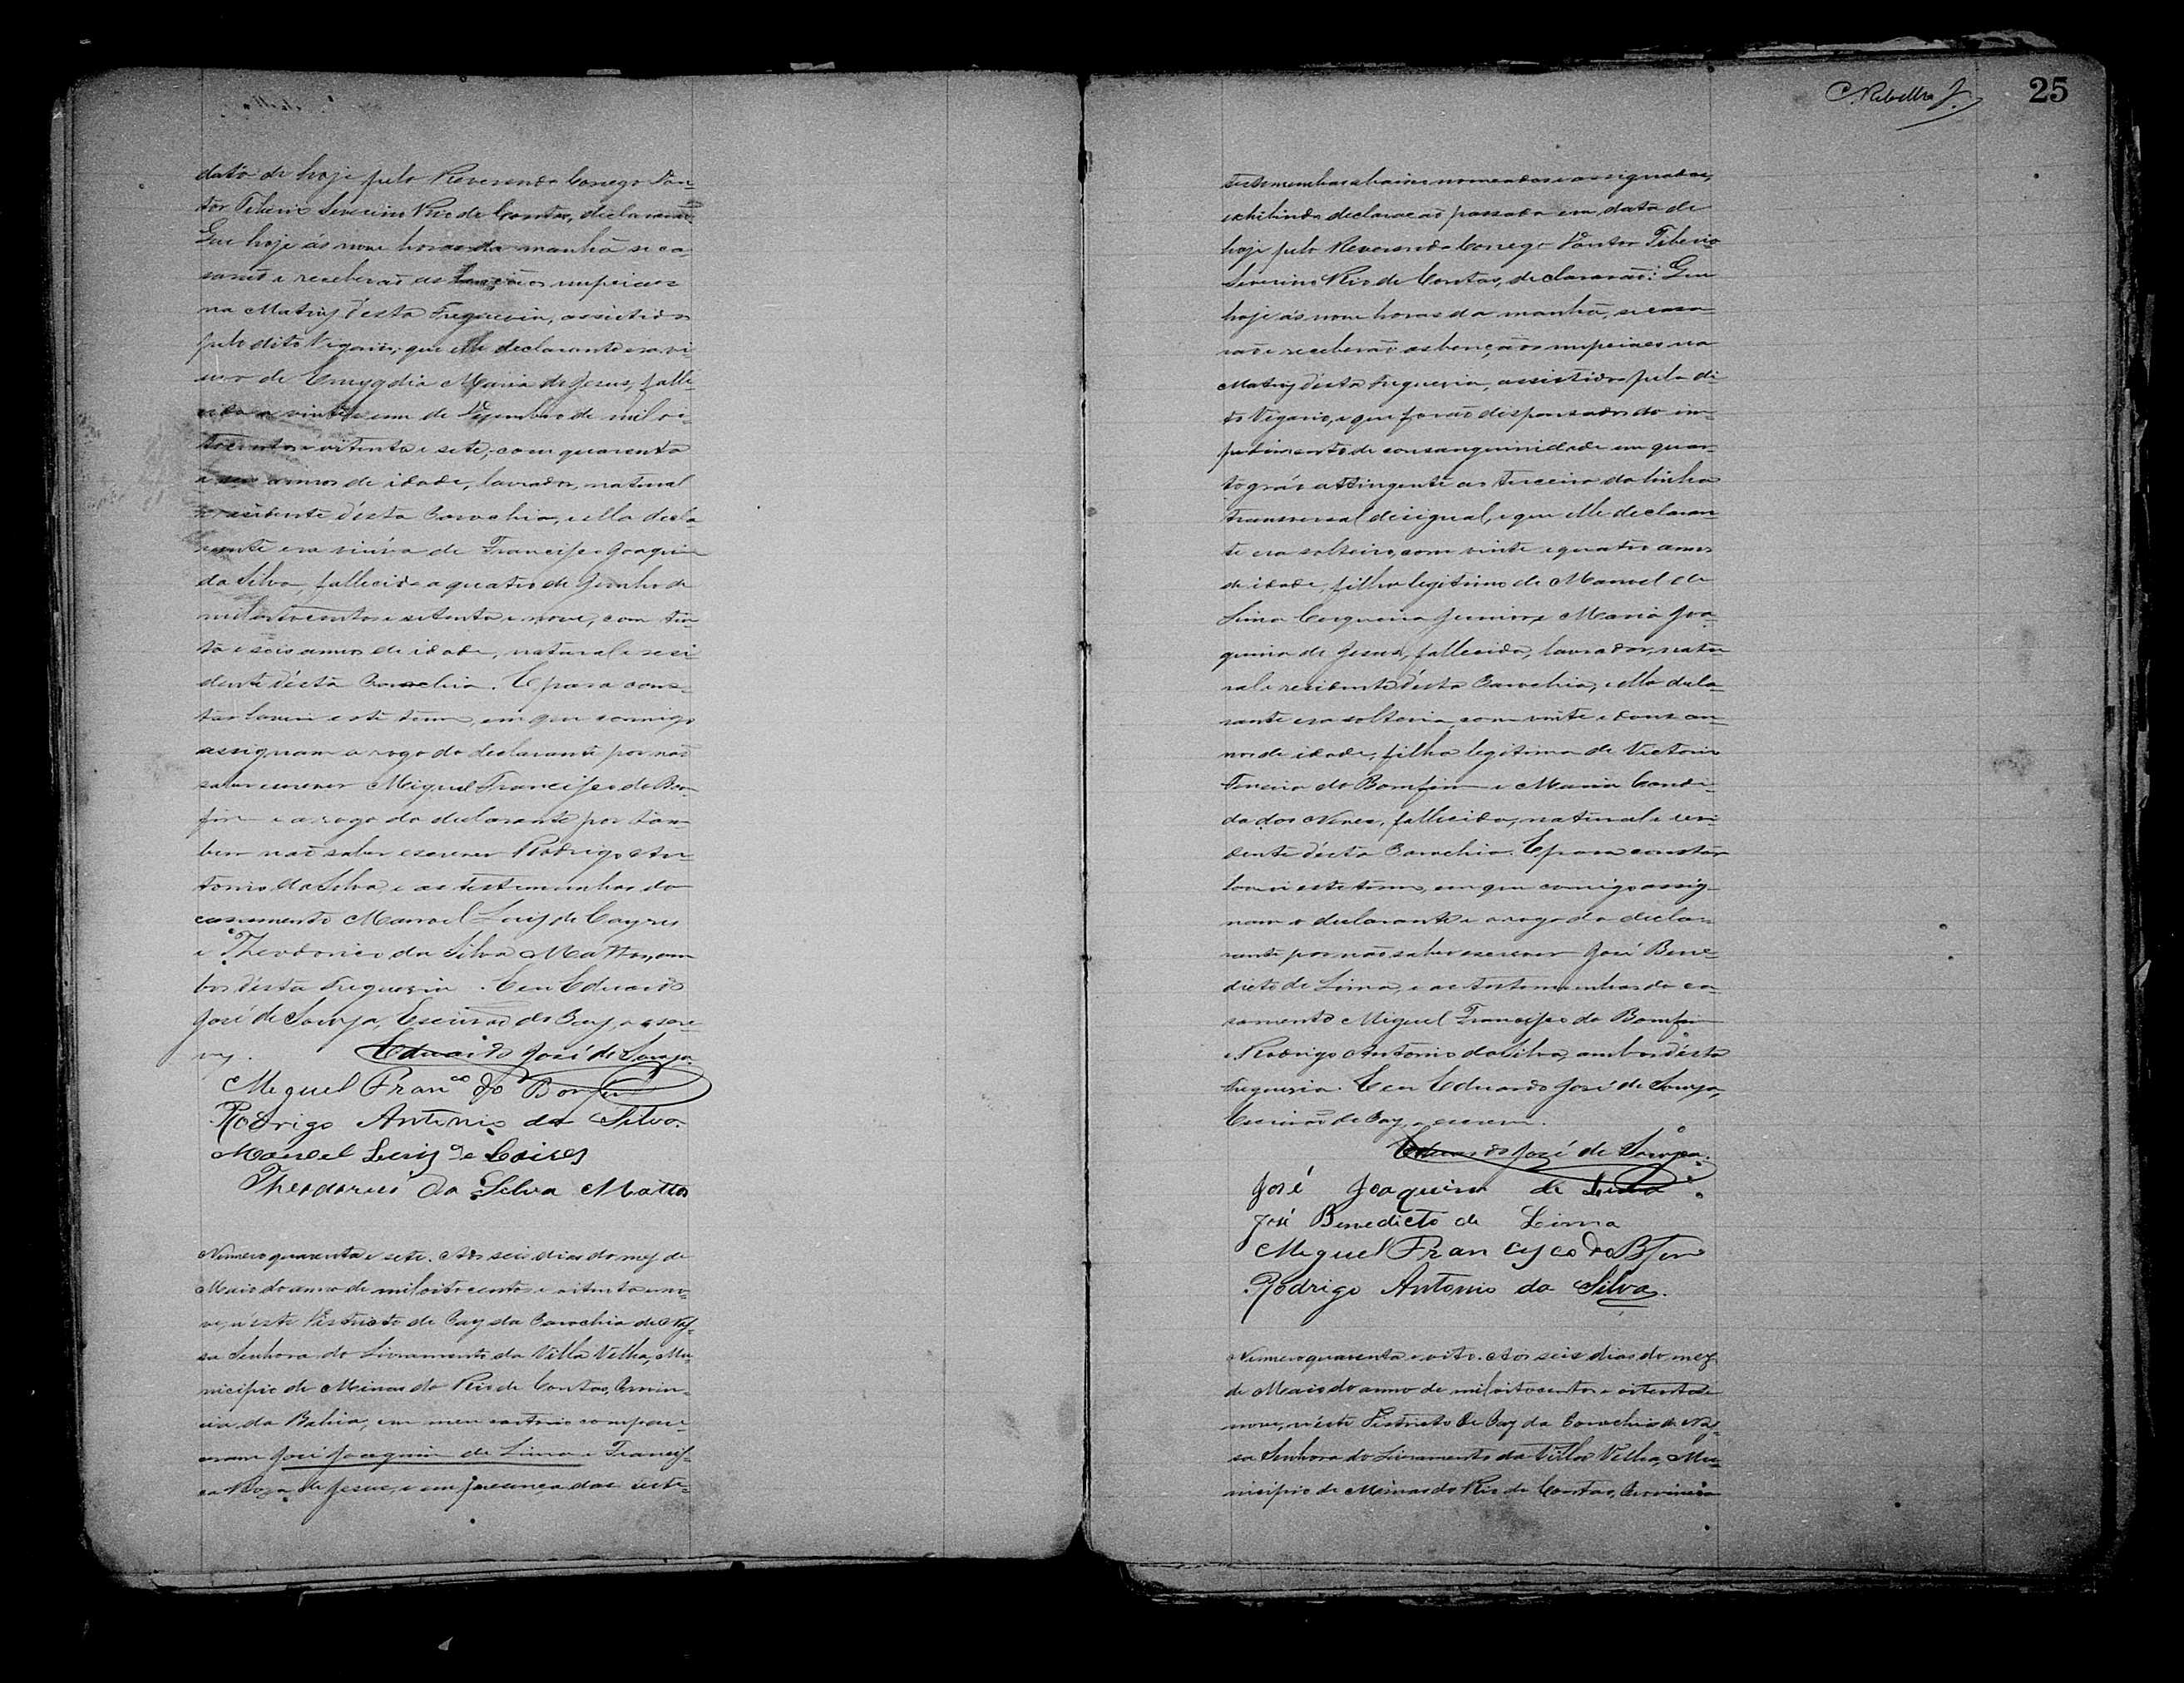 data de hoje pelo Reverendo Conego Dou-
tor Tiberio Severino Rio de Contas, declararaõ:
Que hoje ás nove horas da manhã se ca-
saraõ e receberaõ as bençãos nupciaes
na Matriz d'esta Freguesia, assistidos
pelo dito Vigario; que elle declarante era vi-
uvo de Emygdia Maria de Jesus, falle-
cida a vinte e um de Dezembro de mil oi-
tocentos e oitenta e sete, com quarenta
e seis annos de idade, lavrador, natural
e residente d'esta Parochia, e ella decla-
rante era viúva de Francisco Joaquim
da Silva, fallecido a quatro de Junho de
mil oitocentos e setenta e nove, com trin-
ta e seis annos de idade, natural e resi-
dente d'esta Parochia. E para cons-
tar lavrei este termo, em que commigo
assignam a rogo do declarante por naõ
saber escrever Miguel Francisco do Bom-
fim e a rogo da declarante por tam-
bem naõ saber escrever Rodrigo An-
tonio da Silva, e as testemunhas do
casamento Manoel Luiz de Cayres
e Theodorico da Silva Mattos, am-
bos d'esta Freguesia. E eu Eduardo
José de Souza, Escrivaõ de Paz, o escre-
vy. Eduardo José de Souza.
Miguel Fran.co do Bomfim
Rodrigo Antonio da Silva.
Manoel Luiz de Caires
Theodorico da Silva Mattos
Numero quarenta e sete. Aos seis dias do mez de
Maio do anno de mil oitocentos e oitenta e no-
ve, n'este Districto de Paz da Parochia de Nos-
sa Senhora do Livramento da Villa Velha, Mu-
nicipio de Minas do Rio de Contas, Provin-
cia da Bahia, em meu cartorio compare-
ceram José Joaquim de Lima e Francis-
ca Roza de Jesus, e em presença das teste-
Rebello J.
25
testemunhas abaixo nomeadas e assignadas,
exhibindo declaraçaõ passada em data de
hoje pelo Reverendo Conego Doutor Tiberio
Severino Rio de Contas, declararaõ: Que
hoje ás nove horas da manhã, se casa-
raõ e receberaõ as bençãos nupciaes na
Matriz d'esta Freguesia, assistidos pelo di-
to Vigario, e que foraõ dispensados do im-
pedimento de consanguinidade em quar-
to gráo attingente ao terceiro da linha
transversal desigual, e que elle declaran-
te era solteiro, com vinte e quatro annos
de idade, filho legitimo de Manoel de
Lima Cerqueira Junior e Maria Joa-
quina de Jesus, fallecida, lavrador, natu-
ral e residente d'esta Parochia, e ella decla-
rante era solteira, com vinte e dous an-
nos de idade, filha legitima de Victorio
Pereira do Bomfim e Maria Candi-
da das Neves, fallecida, natural e resi-
dente d'esta Parochia. E para constar
lavrei este termo, em que comigo assig-
nam o declarante e a rogo da decla-
rante por não saber escrever José Bene-
dicto de Lima, e as testemunhas do ca-
samento Miguel Francisco do Bomfim
e Rodrigo Antonio da Silva, ambos d'esta
Freguesia. E eu Eduardo José de Souza,
Escrivaõ de Paz, o escrevi.
Eduardo José de Souza.
José Joaquim de Lima.
José Benedicto de Lima
Miguel Francisco do Bfim
Rodrigo Antonio da Silva.
Numero quarenta e oito. Aos seis dias do mez
de Maio do anno de mil oitocentos e oitenta e
nove, n'este Districto de Paz da Parochia de Nos-
sa Senhora do Livramento da Villa Velha, Mu-
nicipio de Minas do Rio de Contas, Provincia